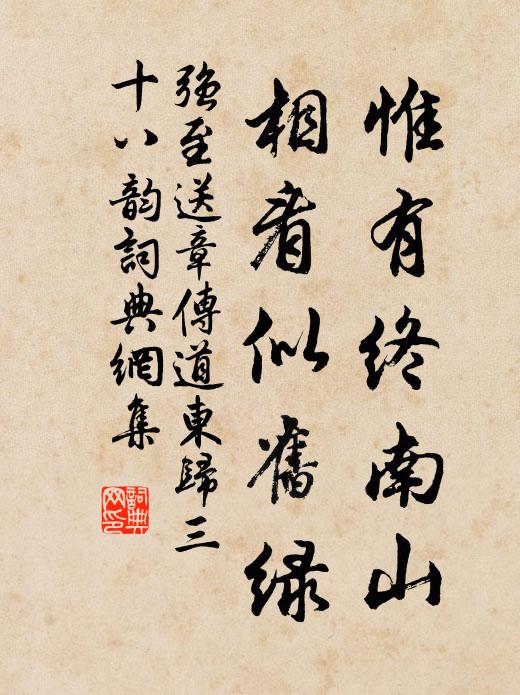 惟有终南山
相看似舊緑
强至送章傳道東歸三
十八韵詞典網集
詞典网印